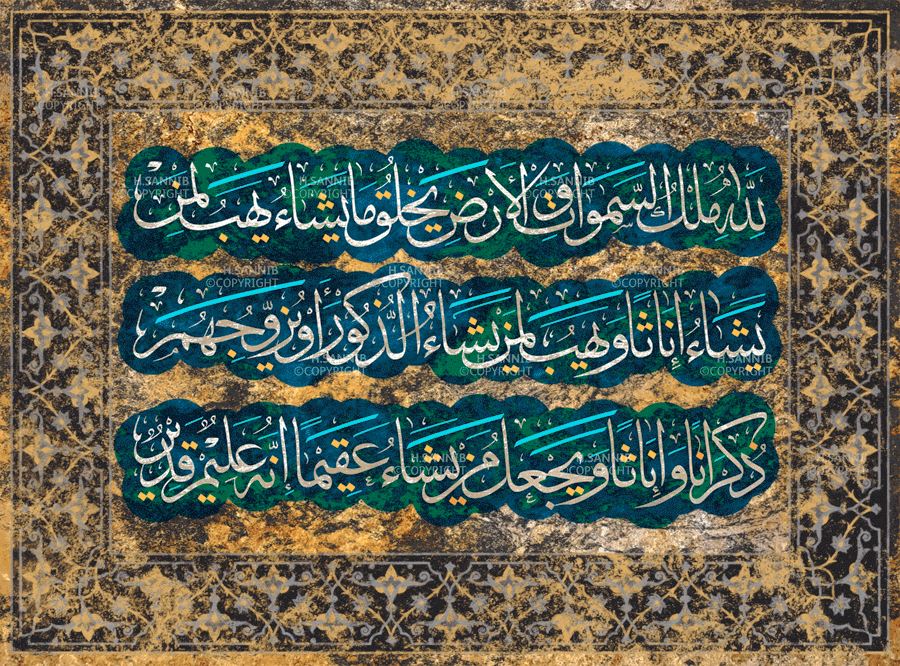 لله ملك السموات والأرض يخلق ما يشاء يهب لمن
يشاء إناثا ويهب لمن يشاء الذكور أو يزوجهم
ذكرانا وإناثا ويجعل من يشاء عقيما إنه عليم قدير
H.SANNIB
©COPYRIGHT